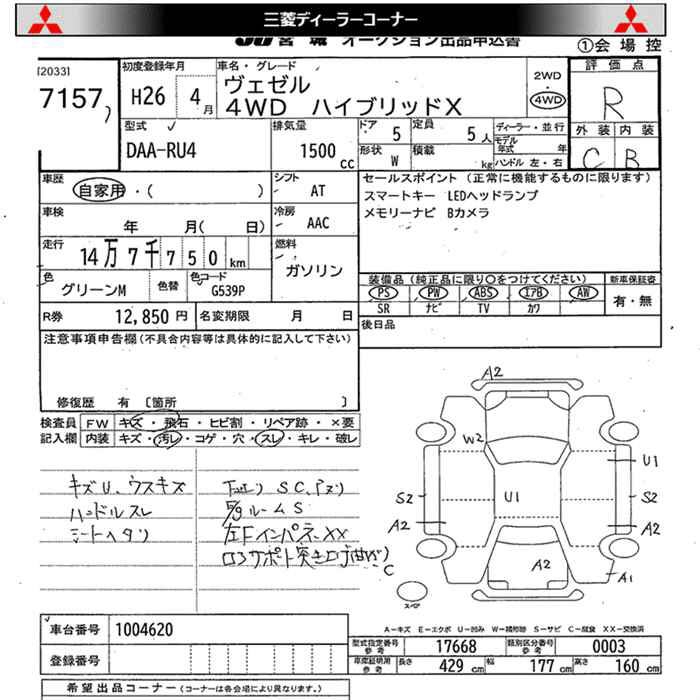 三菱ディーラーコーナー
JU 宮城 オークション出品申込書 ①会場控
[2033]
7157
初度登録年月
H26 4月
車名・グレード
ヴェゼル
4WD ハイブリッドX
2WD
・
4WD
評価点
R
外装 内装
C B
型式
DAA-RU4
排気量
1500 cc
ドア 5
定員 5人
形状 W
積載 kg
ディーラー・並行
モデル年式 年
ハンドル 左・右
車歴
自家用・( )
シフト
AT
セールスポイント (正常に機能するものに限ります)
スマートキー LEDヘッドランプ
メモリーナビ Bカメラ
車検
年 月( 日)
冷房
AAC
走行
14万7千750km
燃料
ガソリン
色
グリーンM
色替
色コード
G539P
装備品 (純正品に限り○をつけてください)
PS PW ABS エアB AW
SR ナビ TV カワ
新車保証書
有・無
R券 12,850円
名変期限 月 日
後日品
注意事項申告欄 (不具合内容等は具体的に記入して下さい)
修復歴 有 〔箇所 〕
検査員記入欄
FW キズ・飛石・ヒビ割・リペア跡・×要
内装 キズ・汚レ・コゲ・穴・スレ・キレ・破レ
キズU、ウスキズ
ハンドルスレ
シートヘタリ
下エリSC、
ルームS
左FインパネXX
コアサポート突き上げ曲がり
A2
W2
U1
U1
S2
S2
A2
A2
A2
A1
C
スペア
A-キズ E-エクボ U-凹み W-補修跡 S-サビ C-腐食 XX-交換済
車台番号 1004620
登録番号
型式指定番号 参考 17668
類別区分番号 参考 0003
車庫証明用 参考 長さ 429cm 幅 177cm 高さ 160cm
希望出品コーナー (コーナーは各会場により異なります。)